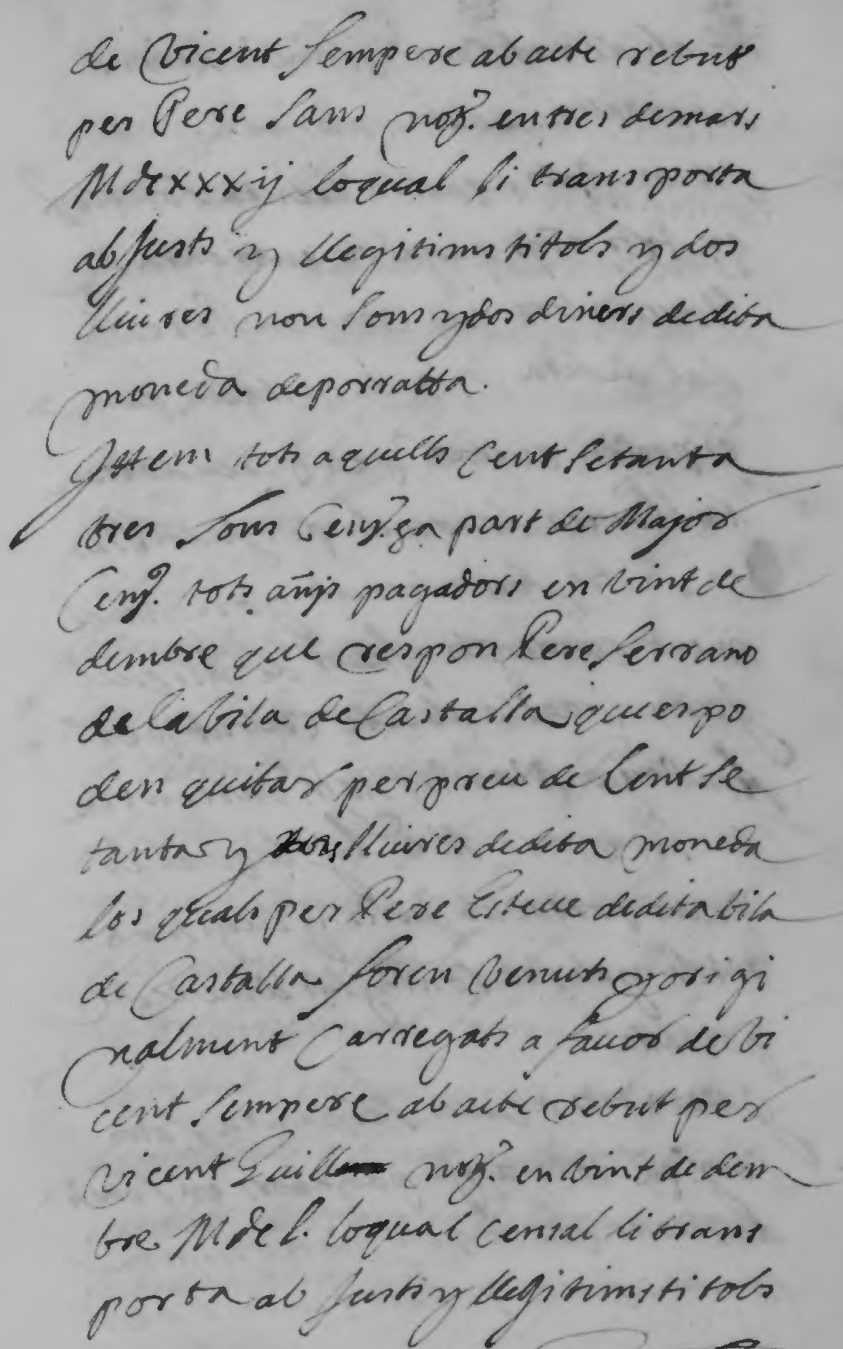 de Vicent Sempere ab acte rebut
per Pere Sans not. en tres de mars
Mdcxxxij loqual li transporta
ab Justs y llegitims titols y dos
lliures nou sous y dos diners de dita
moneda de porratta.
Ittem tots aquells Cent setanta
tres sous Cens. part de Major
Cens. tots añys pagadors en vint de
dembre que respon Pere Serrano
de la vila de Castalla, quies po
den quitar per preu de Cent se
tanta y tres lliures de dita moneda
los quals per Pere Esteve de dita vila
de Castalla foren venuts y origi
nalment Carregats a favor de Vi
cent Sempere ab acte rebut per
Vicent Guill not. en vint de dem
bre Mdcl. loqual censal li trans
porta ab Justs y llegitims titols